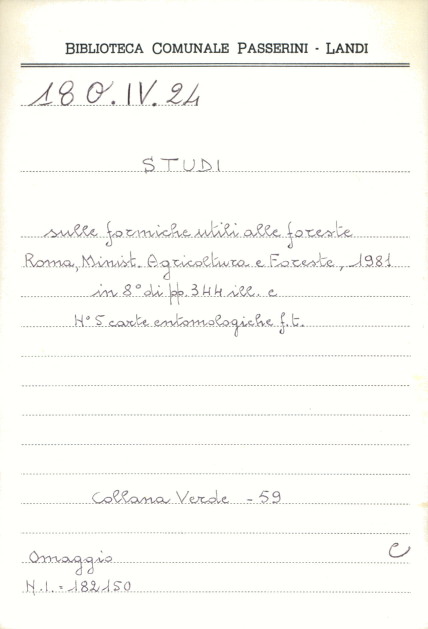 BIBLIOTECA COMUNALE PASSERINI - LANDI
180.IV.24
STUDI
sulle formiche utili alle foreste
Roma, Minist. Agricoltura e Foreste, 1981
in 8° di pp. 344 ill. e
N° 5 carte entomologiche f.t.
Collana Verde - 59
Omaggio
C
N.I. = 182150